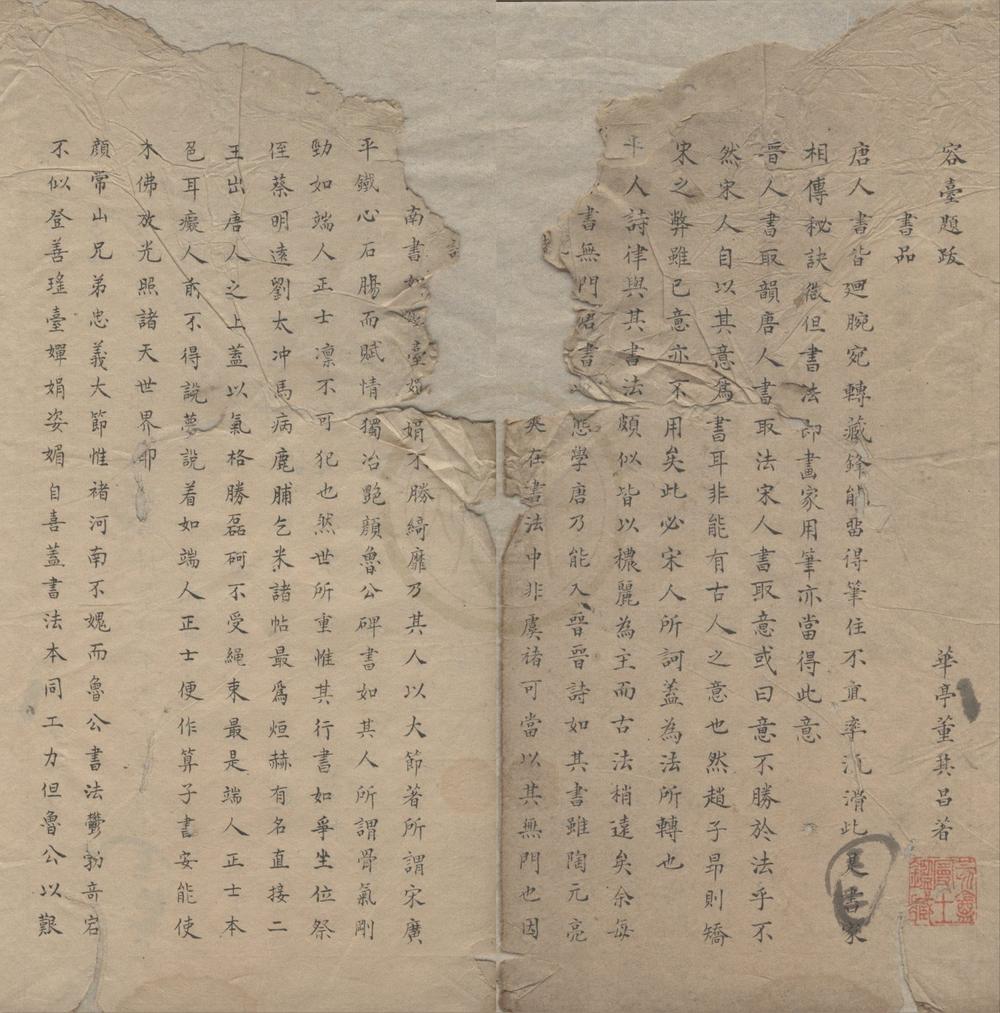 容臺題跋
華亭董其昌著
書品
唐人書皆廻腕宛轉藏鋒能畱得筆住不直率流滑此是書家
相傳秘訣微但書法即畫家用筆亦當得此意
晉人書取韻唐人書取法宋人書取意或曰意不勝於法乎不
然宋人自以其意為書耳非能有古人之意也然趙子昂則矯
宋之弊雖已意亦不用矣此必宋人所訶蓋為法所轉也
人詩律與其書法頗似皆以穠麗為主而古法稍遠矣余每
書無門唐書態學唐乃能入晉晉詩如其書雖陶元亮
在書法中非虞褚可當以其無門也因
南書臺嬋娟不勝綺靡乃其人以大節著所謂宋廣
平鐵心石腸而賦情獨冶艷顏魯公碑書如其人所謂骨氣剛
勁如端人正士凛不可犯也然世所重惟其行書如爭坐位祭
侄蔡明遠劉太冲馬病鹿脯乞米諸帖最為烜赫有名直接二
王出唐人之上蓋以氣格勝磊砢不受繩束最是端人正士本
色耳癡人前不得說夢說着如端人正士便作算子書安能使
木佛放光照諸天世界卲
顏常山兄弟忠義大節惟褚河南不媿而魯公書法鬱勃竒宕
不似登善瑤臺嬋娟姿媚自喜蓋書法本同工力但魯公以艱